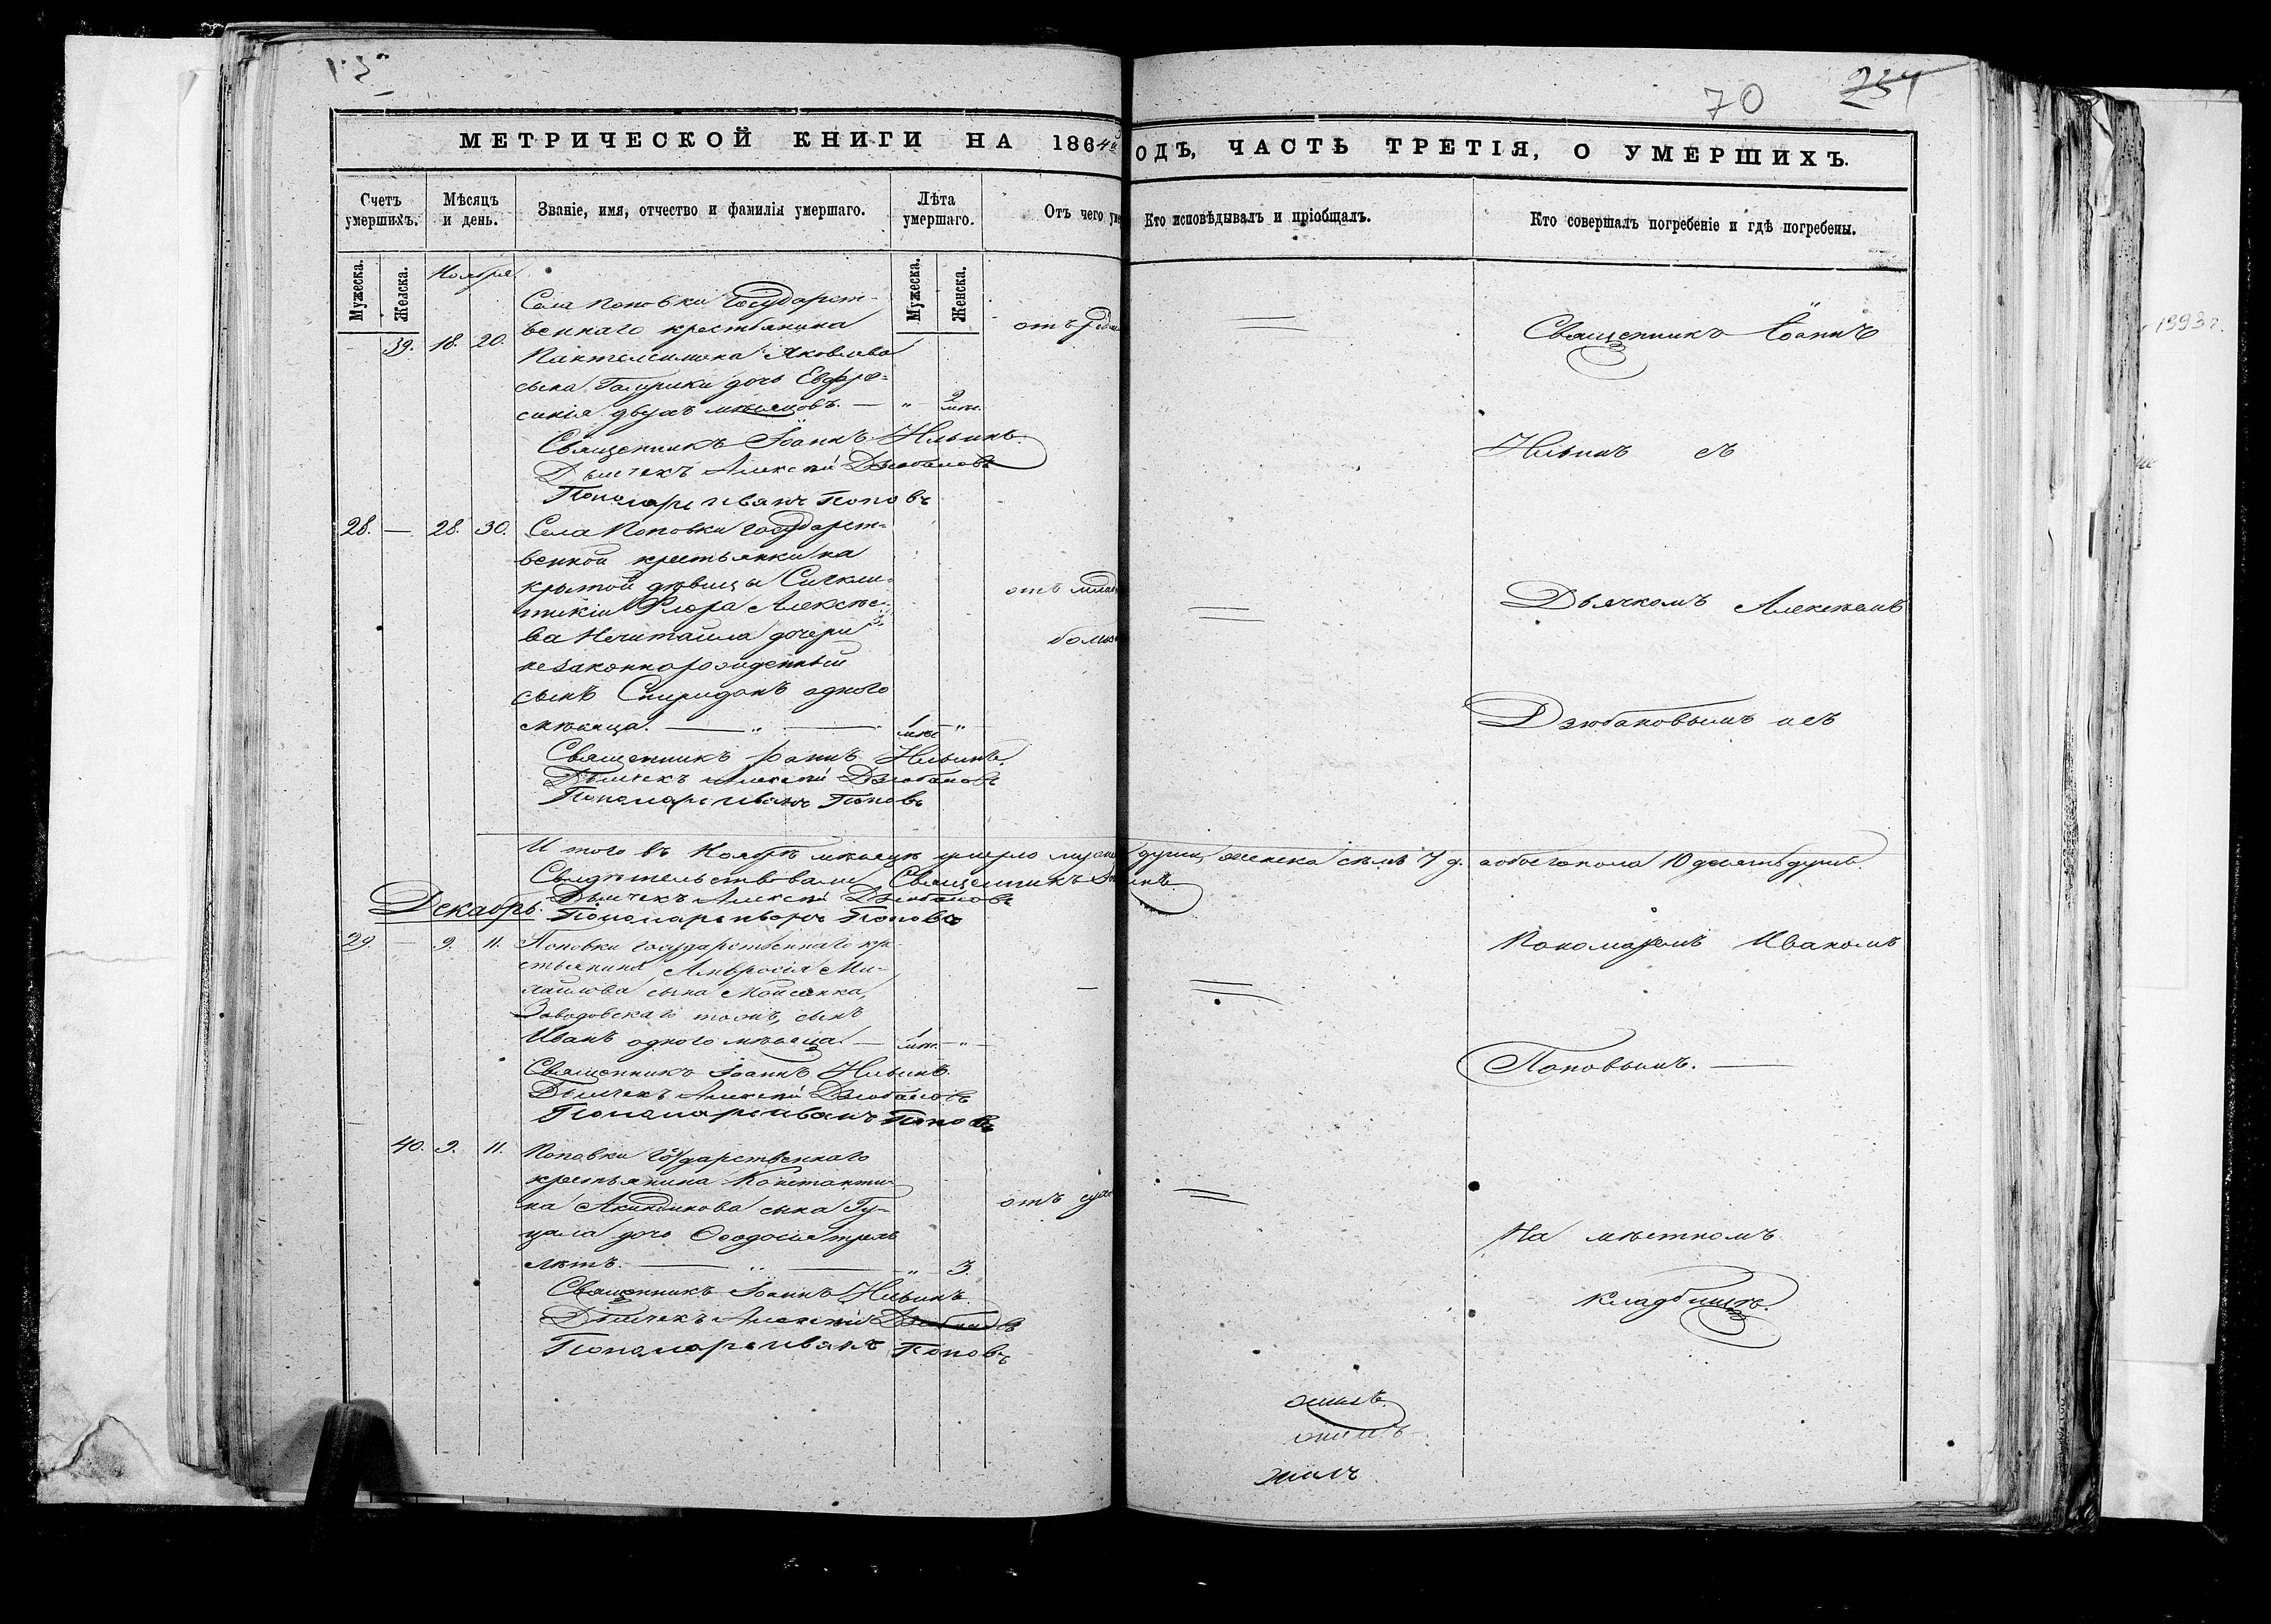 70 234
МЕТРИЧЕСКОЙ КНИГИ НА 1864
ОДЪ, ЧАСТЬ ТРЕТІЯ, О УМЕРШИХЪ.
Счетъ умершихъ.
Мѣсяцъ и день.
Званіе, имя, отчество и фамилія умершаго.
Лѣта умершаго.
Отъ чего
Кто исповѣдывалъ и пріобщалъ.
Кто совершалъ погребеніе и гдѣ погребены.
Мужеска.
Женска.
Мужеска.
Женска.
Ноября
39. 18. 20.
Села Поповки Государст-
веннаго крестьянина
Пантелеимона Яковлева
сына дочь Евфро-
синія двухъ мѣсяцовъ. — " 2 мѣс.
отъ
Священникъ Іоаннъ Ильинъ.
Дьячекъ Алексѣй Дзюбановъ
Пономарь Иванъ Поповъ
28. — 28. 30.
Села Поповки Государст-
венной крестьянки на
крытой дѣвицы Синкли-
тикіи Флора Алексѣе-
ва Нечитайла дочери
незаконнорожденный
сынъ Спиридонъ одного
мѣсяца. — " — 1 мѣс. "
отъ
Священникъ Іоаннъ Ильинъ.
Дьячекъ Алексѣй Дзюбановъ
Пономарь Иванъ Поповъ
И того въ Ноябрѣ мѣсяцѣ умерло душъ, женска семь 7 д. а обоего пола 10 десять душъ.
Свидѣтельствовали Священникъ
Дьячекъ Алексѣй Дзюбановъ
Декабрь. Пономарь Иванъ Поповъ
29. — 9. 11.
Поповки государственнаго кре-
стьянина Амвросія Ми-
хайлова сына Моисеенка,
Заводовскаго тожъ, сынъ
Иванъ одного мѣсяца. — 1 мѣс. — "
Священникъ Іоаннъ Ильинъ.
Дьячекъ Алексѣй Дзюбановъ
Пономарь Иванъ Поповъ
40. 9. 11.
Поповки Государственнаго
крестьянина Константи-
на Акиндинова сына Гу-
цала дочь Ѳеодосія трехъ
лѣтъ. — " — " — 3.
отъ
Священникъ Іоаннъ Ильинъ
Дьячекъ Алексѣй Дзюбановъ
Пономарь Иванъ Поповъ
Священникъ Іоаннъ
Ильинъ съ
Дьячкомъ Алексѣемъ
Дзюбановымъ и съ
Пономаремъ Иваномъ
Поповымъ. —
На мѣстномъ
кладбищѣ.
1993 г.